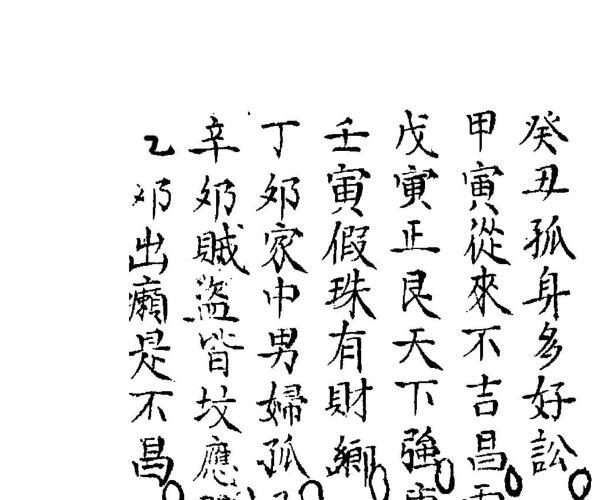 癸丑孤身多好訟
甲寅從來不吉昌
戊寅正艮天下強
壬寅假珠有財鄉
丁卯家中男婦孤
辛卯賊盜皆坟應
乙卯出癩是不昌